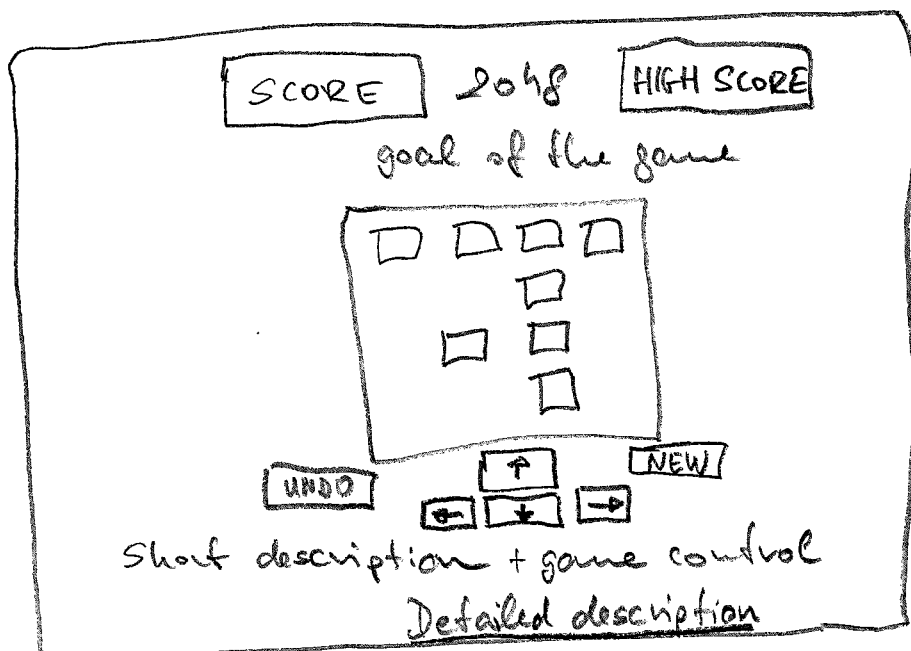 SCORE 2048 HIGH SCORE
goal of the game
↑
UNDO NEW
← ↓ →
Short description + game control
Detailed description